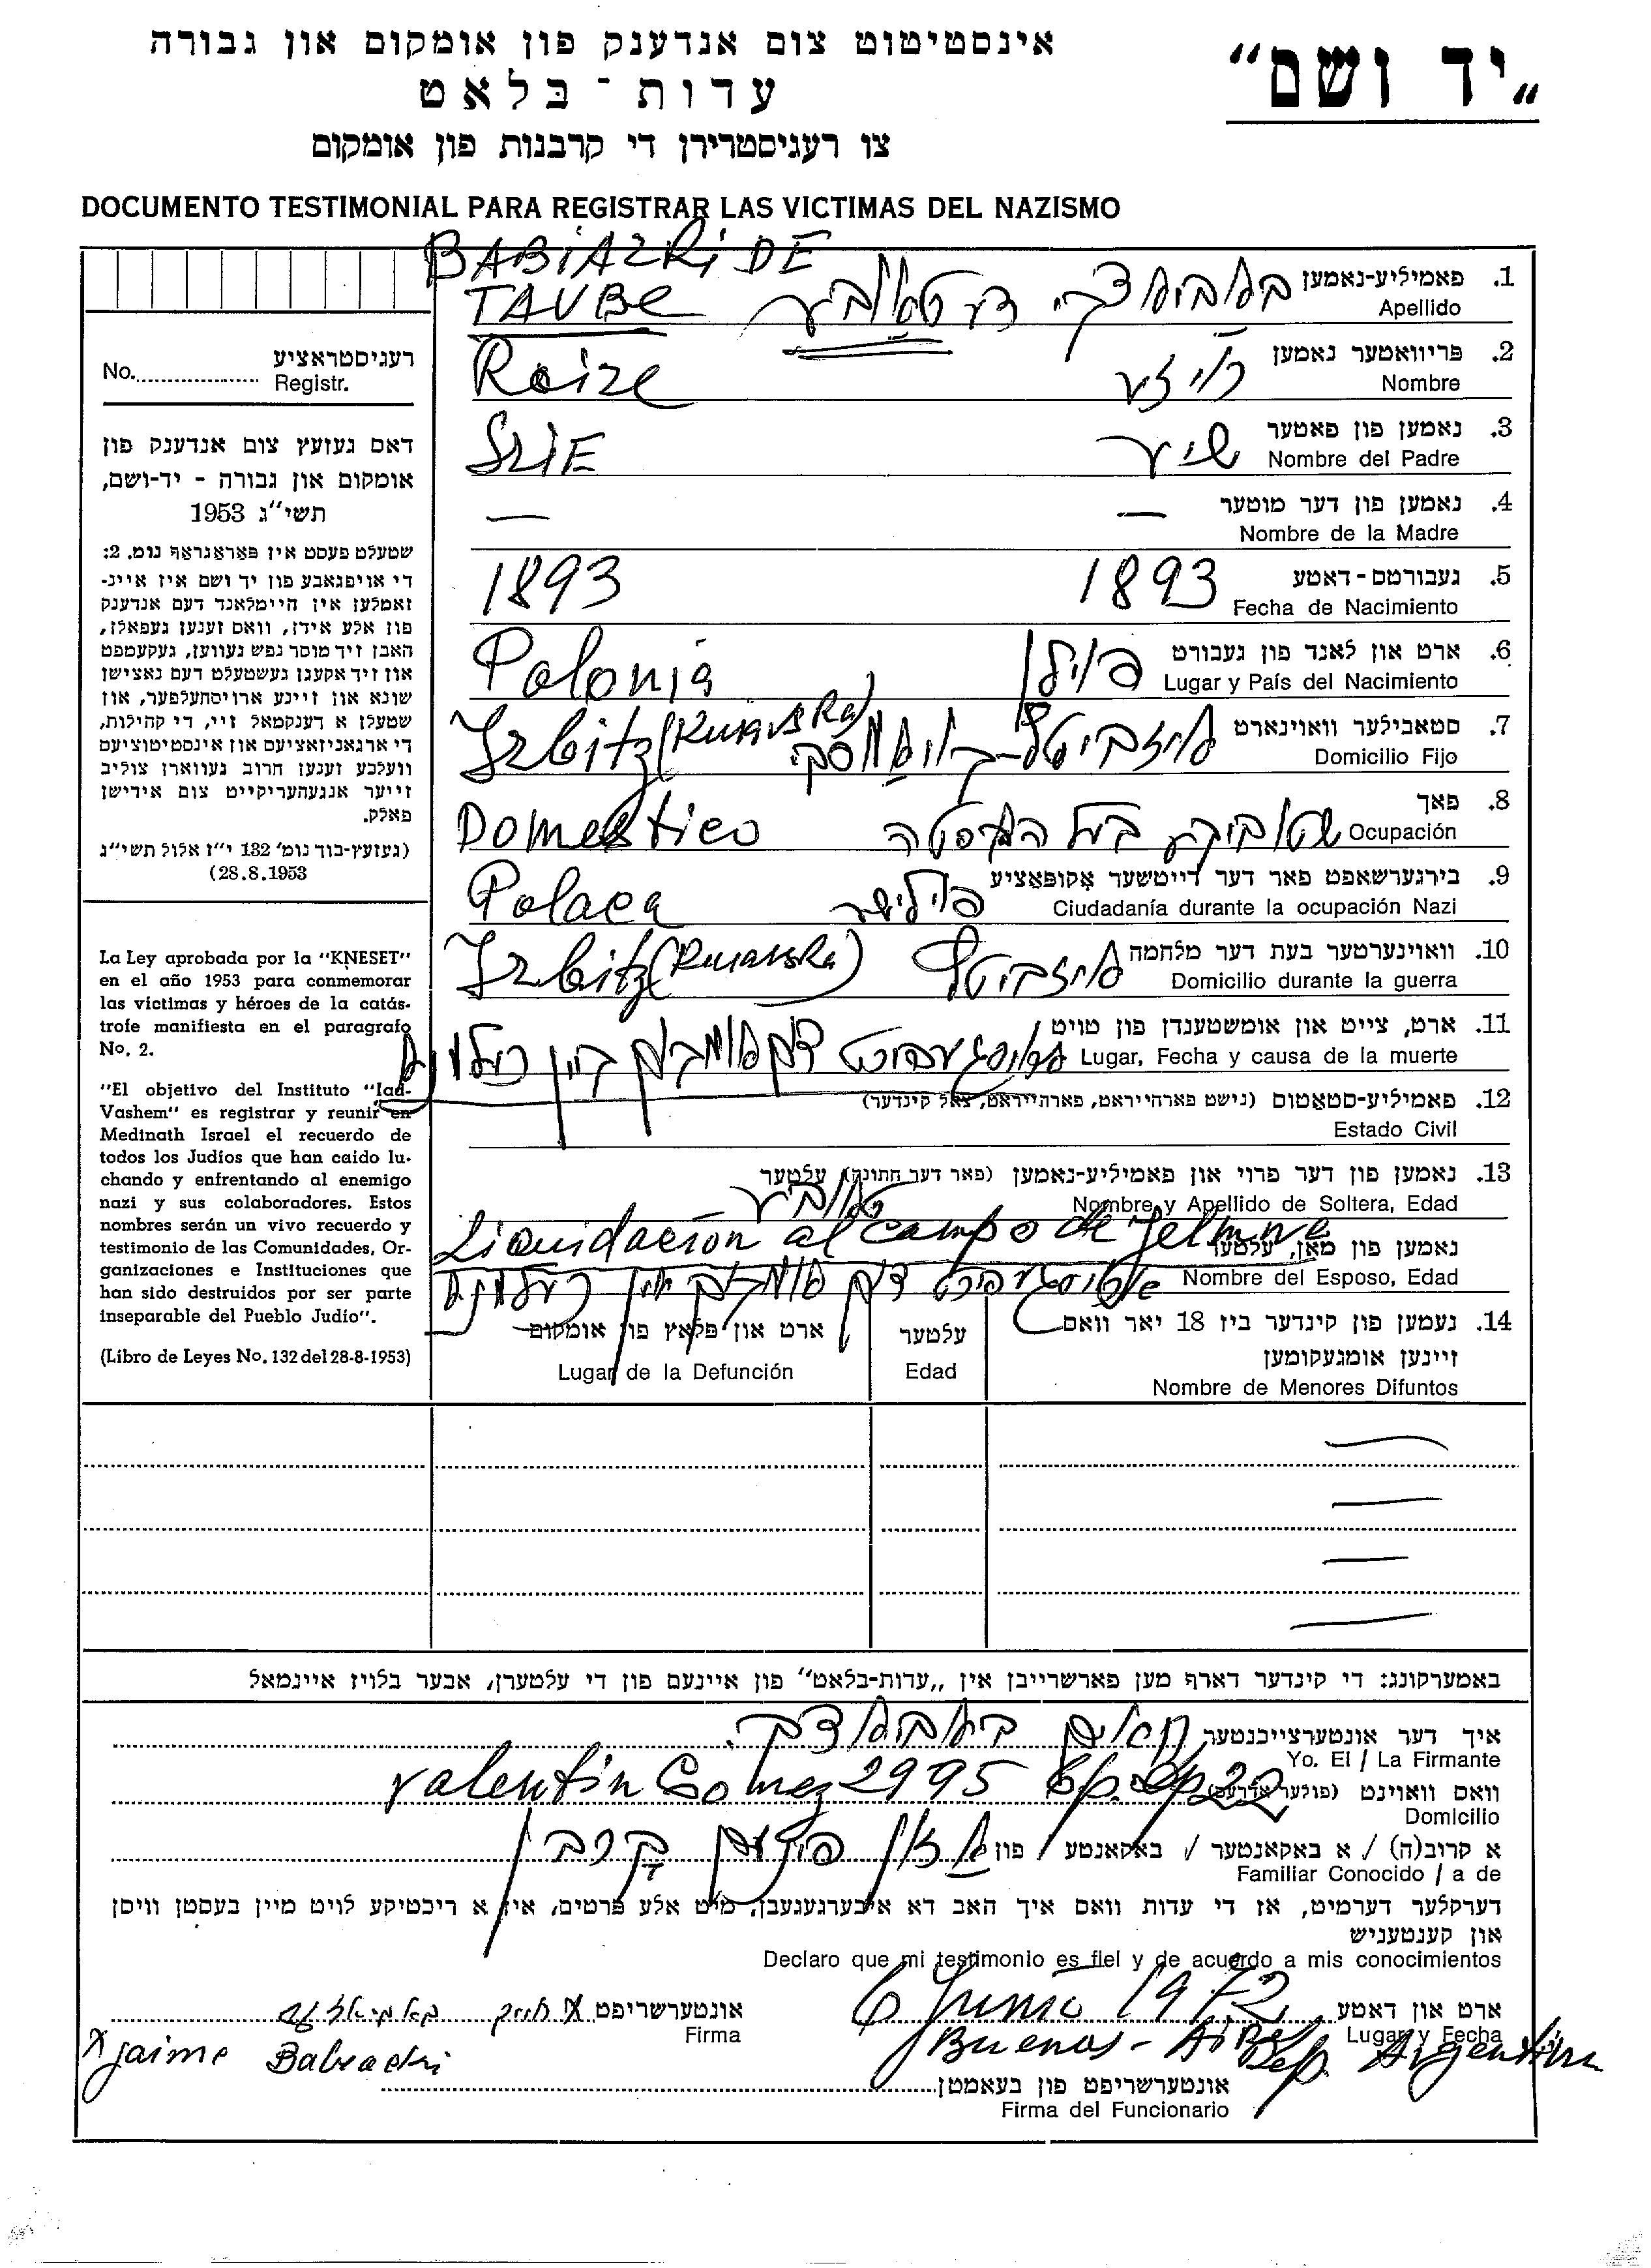 „יד ושם"
אינסטיטוט צום אנדענק פון אומקום און גבורה
עדות-בלאט
צו רעגיסטרירן די קרבנות פון אומקום
DOCUMENTO TESTIMONIAL PARA REGISTRAR LAS VICTIMAS DEL NAZISMO
רעגיסטראציע
No. Registr.
דאס געזעץ צום אנדענק פון
אומקום און גבורה - יד-ושם,
תשי"ג 1953
שטעלט פעסט אין פאראגראף נומ. 2:
די אויפגאבע פון יד ושם איז איינ-
זאמלען אין היימלאנד דעם אנדענק
פון אלע אידן, וואס זענען געפאלן,
האבן זיך מוסר נפש געווען, געקעמפט
און זיך אקעגן געשטעלט דעם נאצישן
שונא און זיינע ארויסהעלפער, און
שטעלן א דענקמאל זיי, די קהילות,
די ארגאניזאציעס און אינסטיטוציעס
וועלכע זענען חרוב געווארן צוליב
זייער אנגעהעריקייט צום אידישן
פאלק.
(געזעץ-בוך נומ' 132 י"ז אלול תשי"ג
28.8.1953)
La Ley aprobada por la "KNESET"
en el año 1953 para conmemorar
las víctimas y héroes de la catás-
trofe manifiesta en el paragrafo
No. 2.
"El objetivo del Instituto "Iad-
Vashem" es registrar y reunir en
Medinath Israel el recuerdo de
todos los Judíos que han caido lu-
chando y enfrentando al enemigo
nazi y sus colaboradores. Estos
nombres serán un vivo recuerdo y
testimonio de las Comunidades, Or-
ganizaciones e Instituciones que
han sido destruidos por ser parte
inseparable del Pueblo Judío".
(Libro de Leyes No. 132 del 28-8-1953)
1. פאמיליע-נאמען
Apellido
BABiAZKi DE
TAUBE
2. פריוואטער נאמען
Nombre
רויזע
Roize
3. נאמען פון פאטער
Nombre del Padre
שיע
4. נאמען פון דער מוטער
Nombre de la Madre
— —
5. געבורטס-דאטע
Fecha de Nacimiento
1893 1893
6. ארט און לאנד פון געבורט
Lugar y País del Nacimiento
פוילן
Polonia
7. סטאבילער וואוינארט
Domicilio Fijo
איזביצע-קויאווסקי
Izbitz
8. פאך
Ocupación
Domestico
9. בירגערשאפט פאר דער דייטשער אקופאציע
Ciudadanía durante la ocupación Nazi
פויליש
Polaca
10. וואוינערטער בעת דער מלחמה
Domicilio durante la guerra
Izbitz
11. ארט, צייט און אומשטענדן פון טויט
Lugar, Fecha y causa de la muerte
12. פאמיליע-סטאטוס (נישט פארהייראט, פארהייראט, צאל קינדער)
Estado Civil
13. נאמען פון דער פרוי און פאמיליע-נאמען (פאר דער חתונה) עלטער
Nombre y Apellido de Soltera, Edad
טאובע
Liquidación al campo de Jelmne
נאמען פון מאן, עלטער
Nombre del Esposo, Edad
14. נעמען פון קינדער ביז 18 יאר וואס
זיינען אומגעקומען
Nombre de Menores Difuntos
עלטער
Edad
ארט און פלאץ פון אומקום
Lugar de la Defunción
באמערקונג: די קינדער דארף מען פארשרייבן אין „עדות-בלאט" פון איינעם פון די עלטערן, אבער בלויז איינמאל
איך דער אונטערצייכנטער
Yo. El / La Firmante
וואס וואוינט (פולער אדרעס)
Domicilio
Valentin Gomez 2995
א קרוב(ה) / א באקאנטער / באקאנטע / פון
Familiar Conocido / a de
דערקלער דערמיט, אז די עדות וואס איך האב דא איבערגעגעבן, מיט אלע פרטים, איז א ריכטיקע לויט מיין בעסטן וויסן
און קענטעניש
Declaro que mi testimonio es fiel y de acuerdo a mis conocimientos
ארט און דאטע
Lugar y Fecha
6 Junio 1972
Buenos-Aires Rep. Argentina
אונטערשריפט
Firma
x Jaime
אונטערשריפט פון באאמטן
Firma del Funcionario